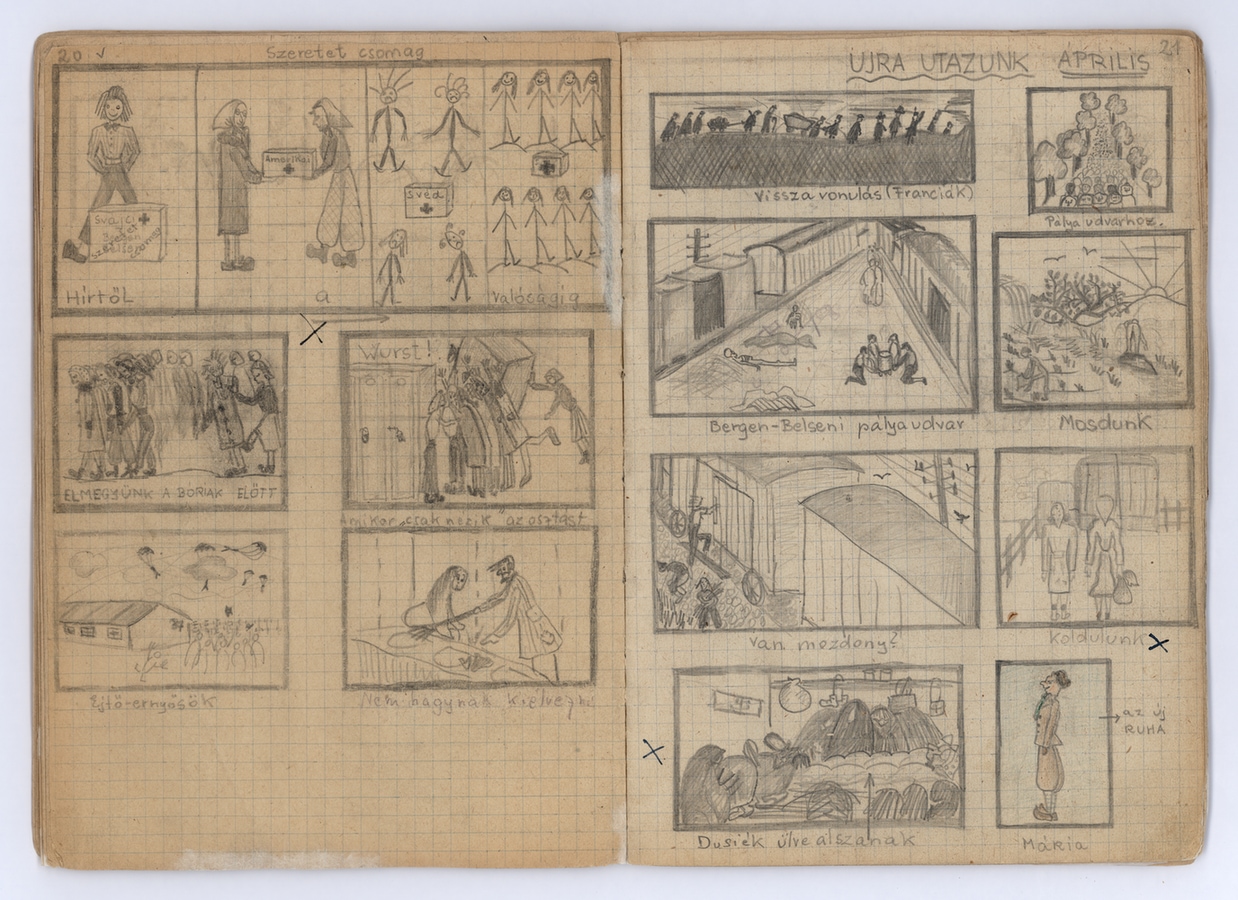 20 ✓
Szeretet csomag
Svájci
Amerikai
Svéd
Hírtől
a
valóságig
ELMEGYÜNK A BÓRIÁK ELŐTT
Wurst!
Amikor „csak nézik" az osztást
Ejtő-ernyősök
Nem hagynak
21
ÚJRA UTAZUNK ÁPRILIS
Vissza vonulás (Franciák)
Pálya udvarhoz.
Bergen-Belseni pályaudvar
Mosdunk
Van mozdony?
Koldulunk
Dusiék ülve alszanak
az új
RUHA
Mária